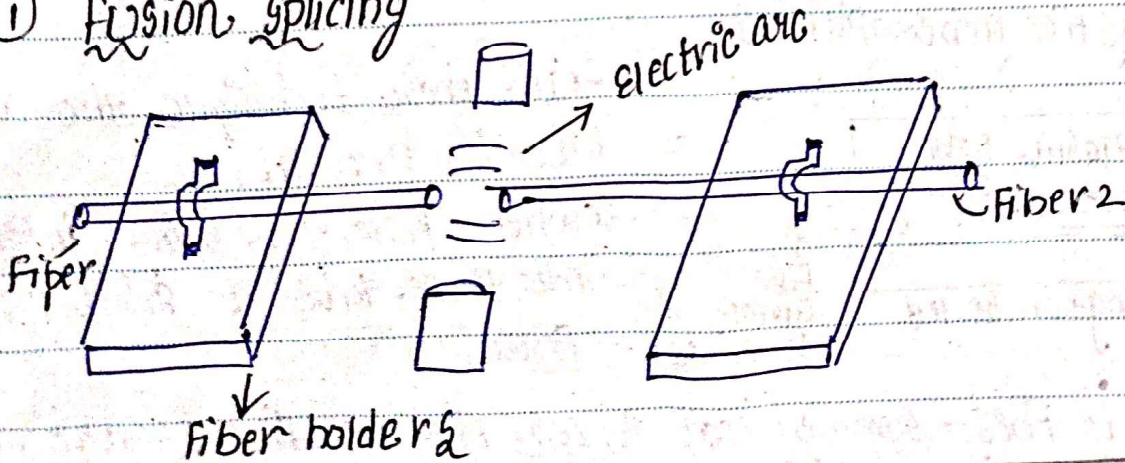 ① Fusion splicing
Electric arc
Fiber 2
Fiber
Fiber holders